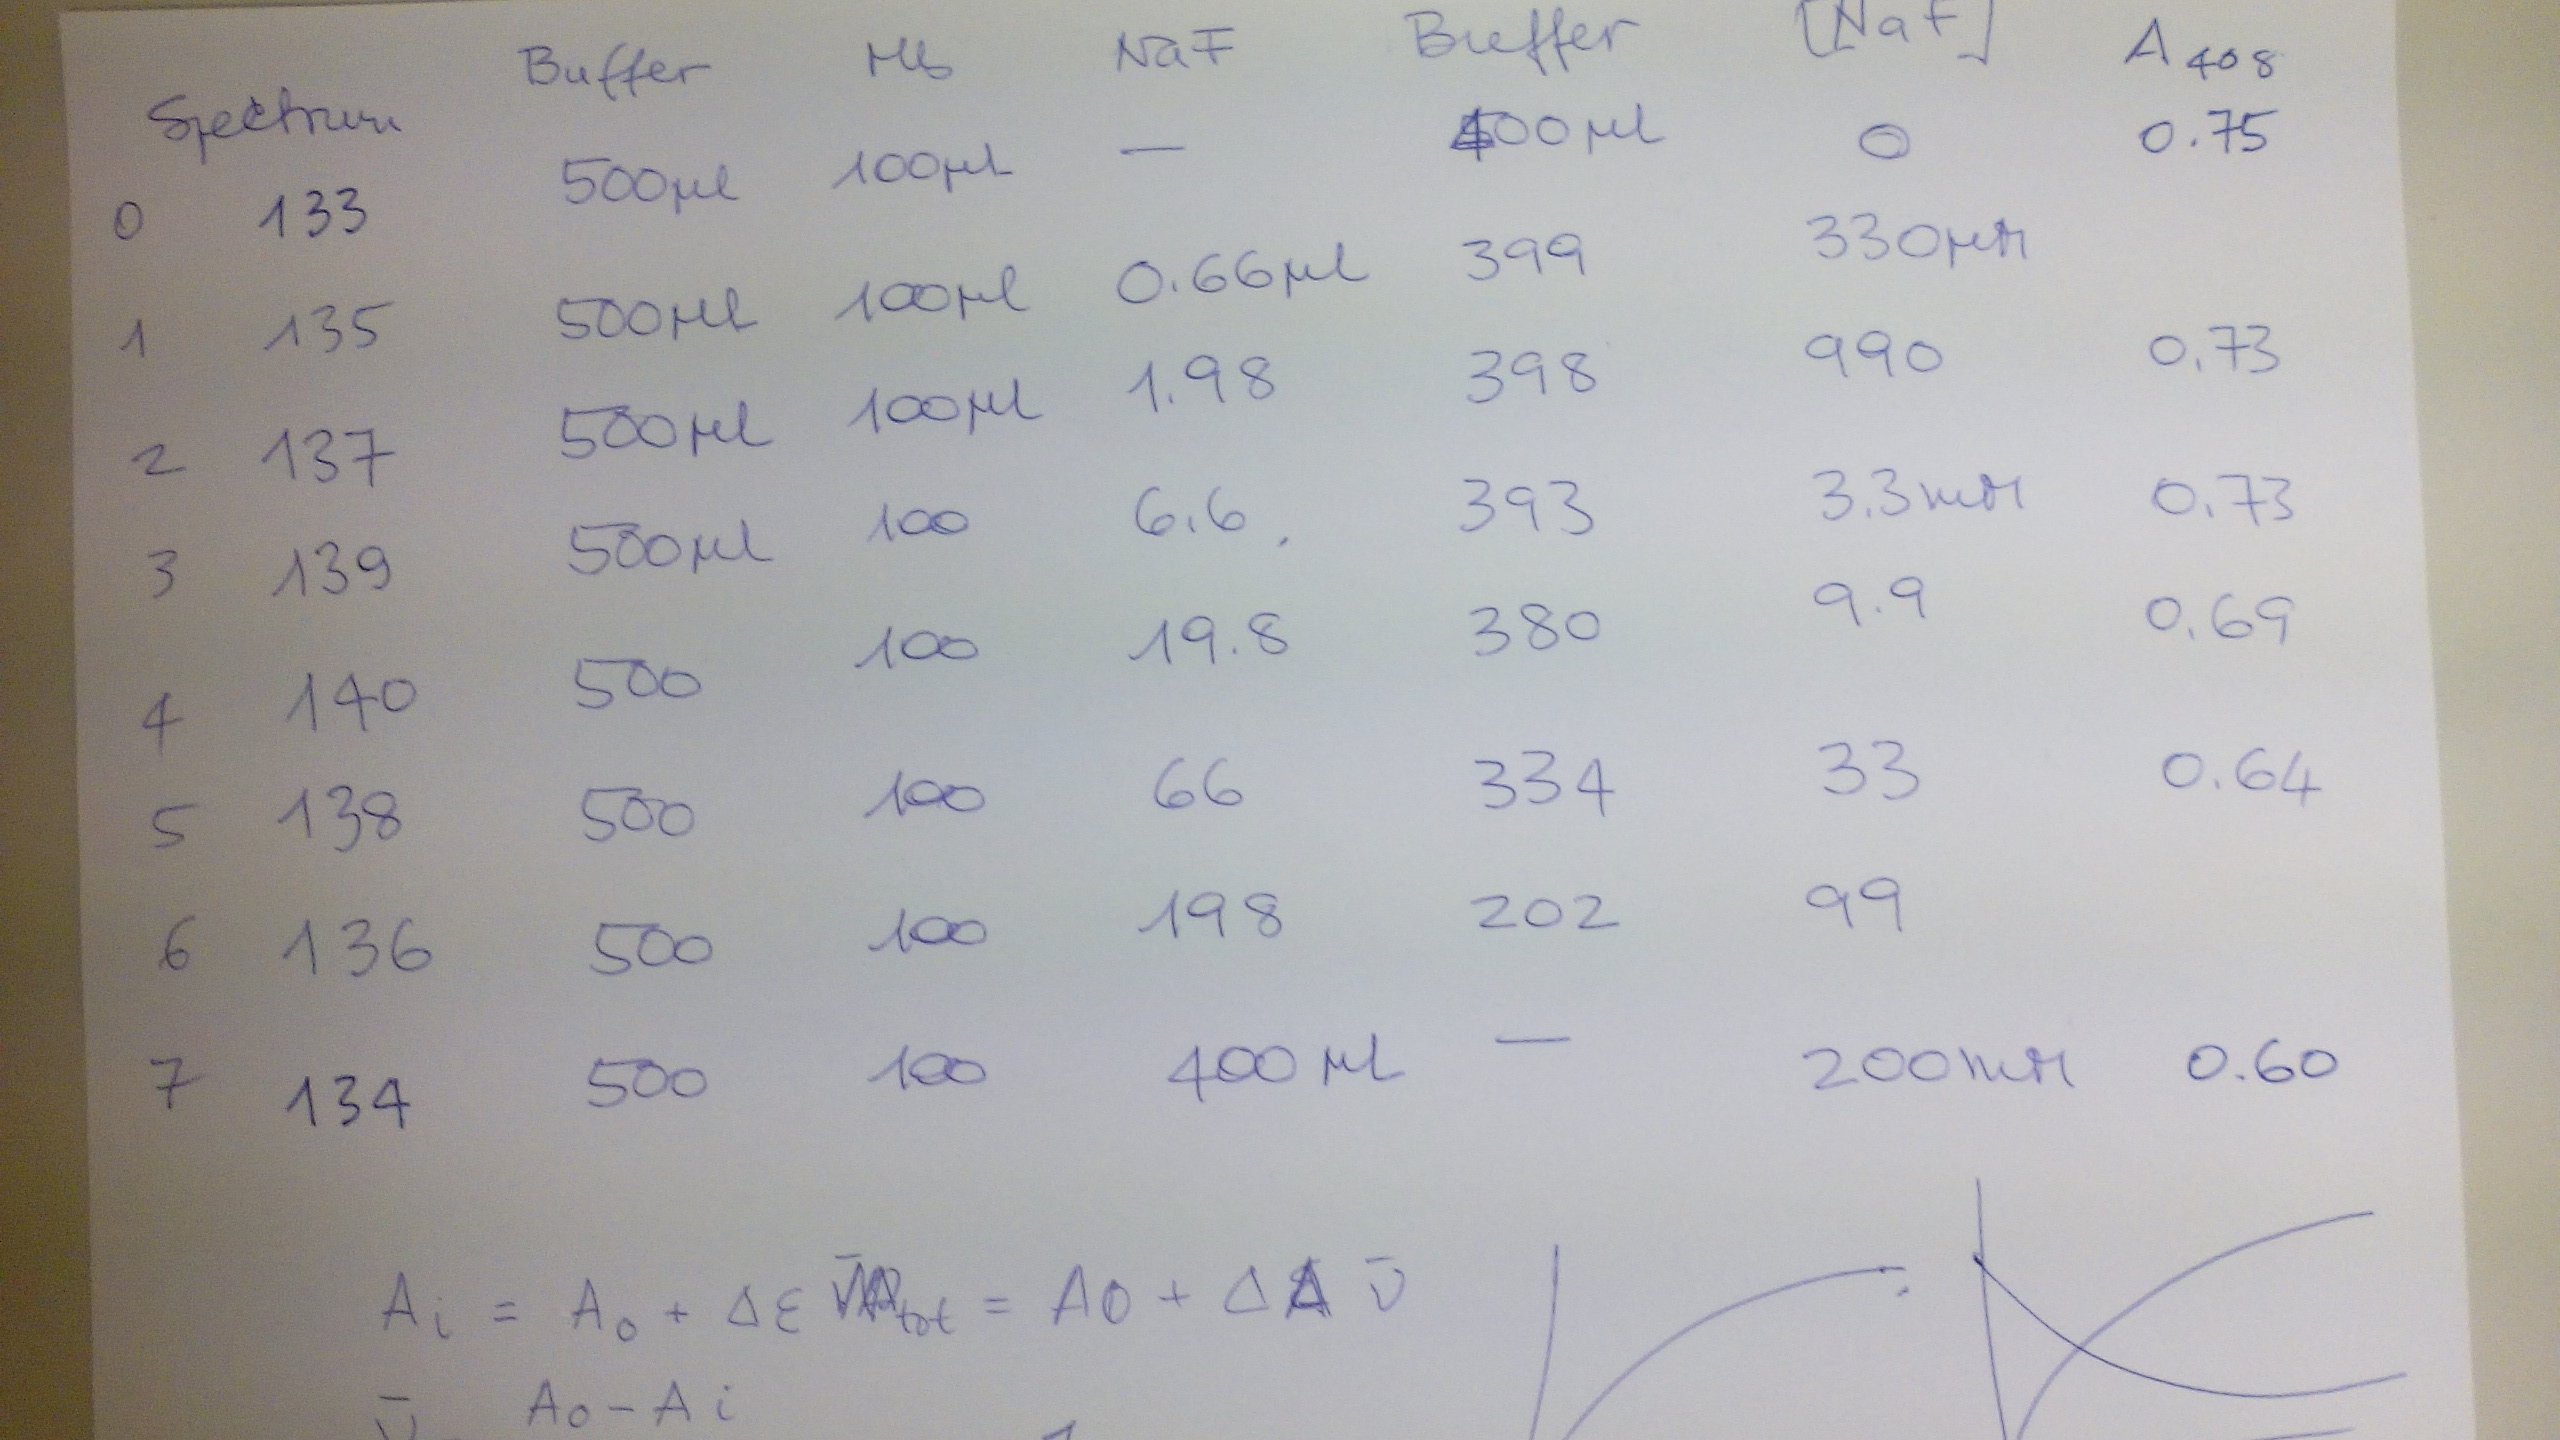 Spectrum Buffer Mb NaF Buffer [NaF] A408
0 133 500µl 100µl — 400µl 0 0.75
1 135 500µl 100µl 0.66µl 399 330µM
2 137 500µl 100µl 1.98 398 990 0.73
3 139 500µl 100 6.6 393 3.3mM 0.73
4 140 500 100 19.8 380 9.9 0.69
5 138 500 100 66 334 33 0.64
6 136 500 100 198 202 99
7 134 500 100 400µl — 200mM 0.60
Ai = A0 + Δε ν̄ tot = A0 + ΔA ν̄
ν̄ A0 - Ai